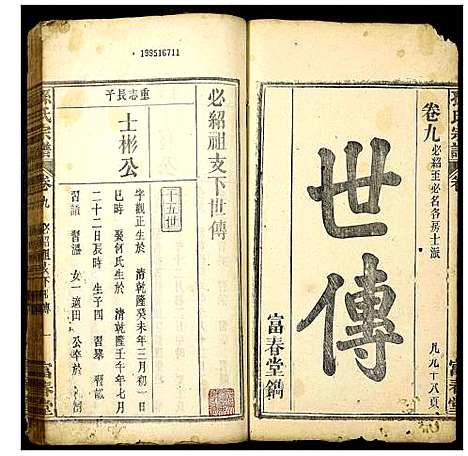 孫氏宗譜
卷九
必紹至必名各房士派
凡九十八頁
世傳
富春堂鐫
199516711
必紹祖支下世傳
十五世
重志長子
士彬公
字觀正生於 清乾隆癸未年三月初一日
巳時 娶何氏生於 清乾隆壬午年七月
二十二日辰時 生子四 習
習 習 女一適田 公卒於
孫氏宗譜
卷九
必紹祖支下世傳
一
富春堂